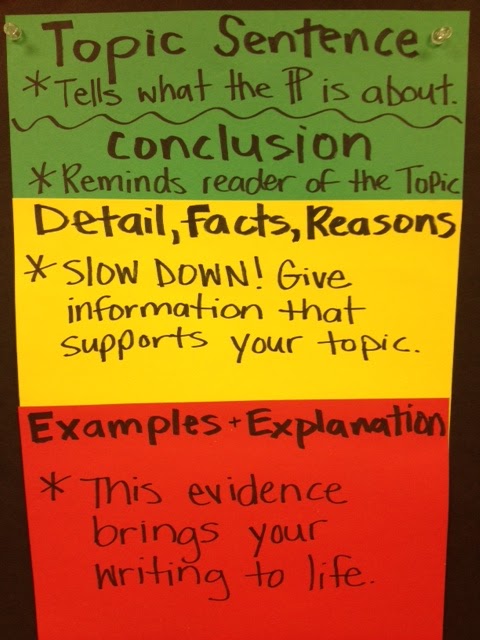 Topic Sentence
* Tells what the ¶ is about.
Conclusion
* Reminds reader of the Topic
Detail, Facts, Reasons
* SLOW DOWN! Give
information that
supports your topic.
Examples + Explanation
* This evidence
brings your
writing to life.